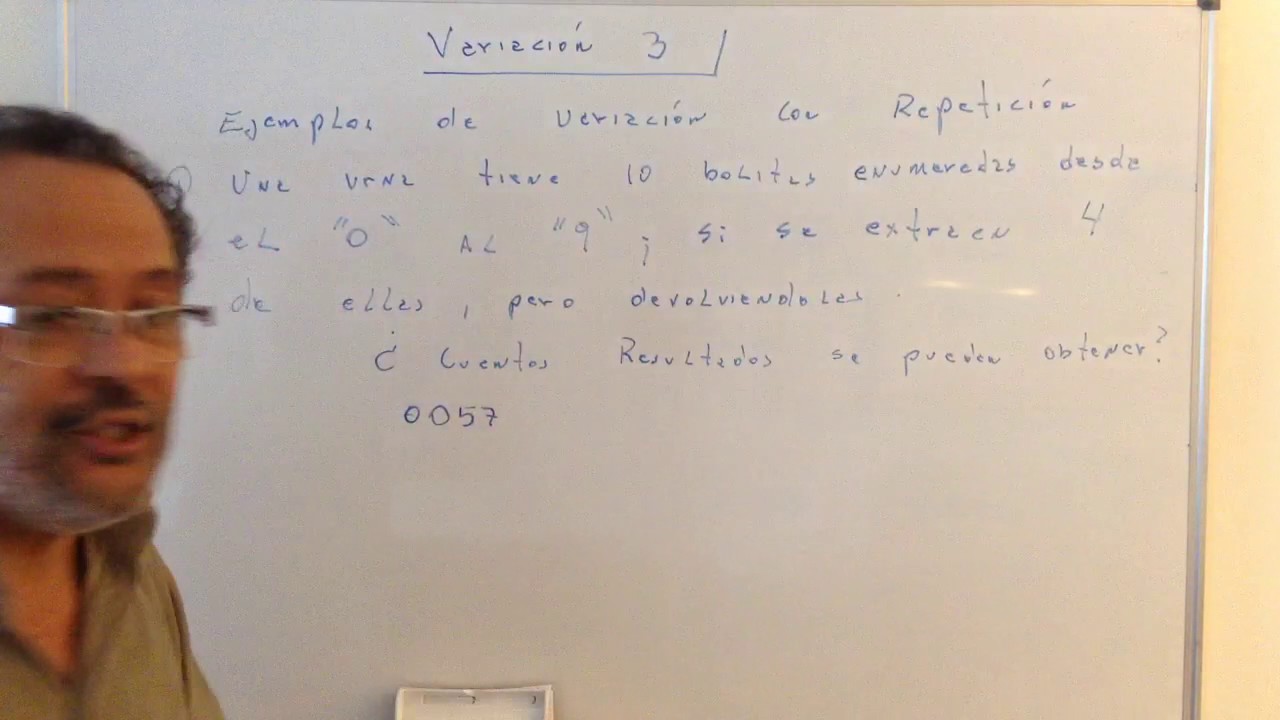 Variación 3
Ejemplos de variación con Repetición
Una urna tiene 10 bolitas enumeradas desde
el "0" al "9" ; si se extraen 4
de ellas , pero devolviendolas .
¿ Cuantos Resultados se pueden obtener?
0057